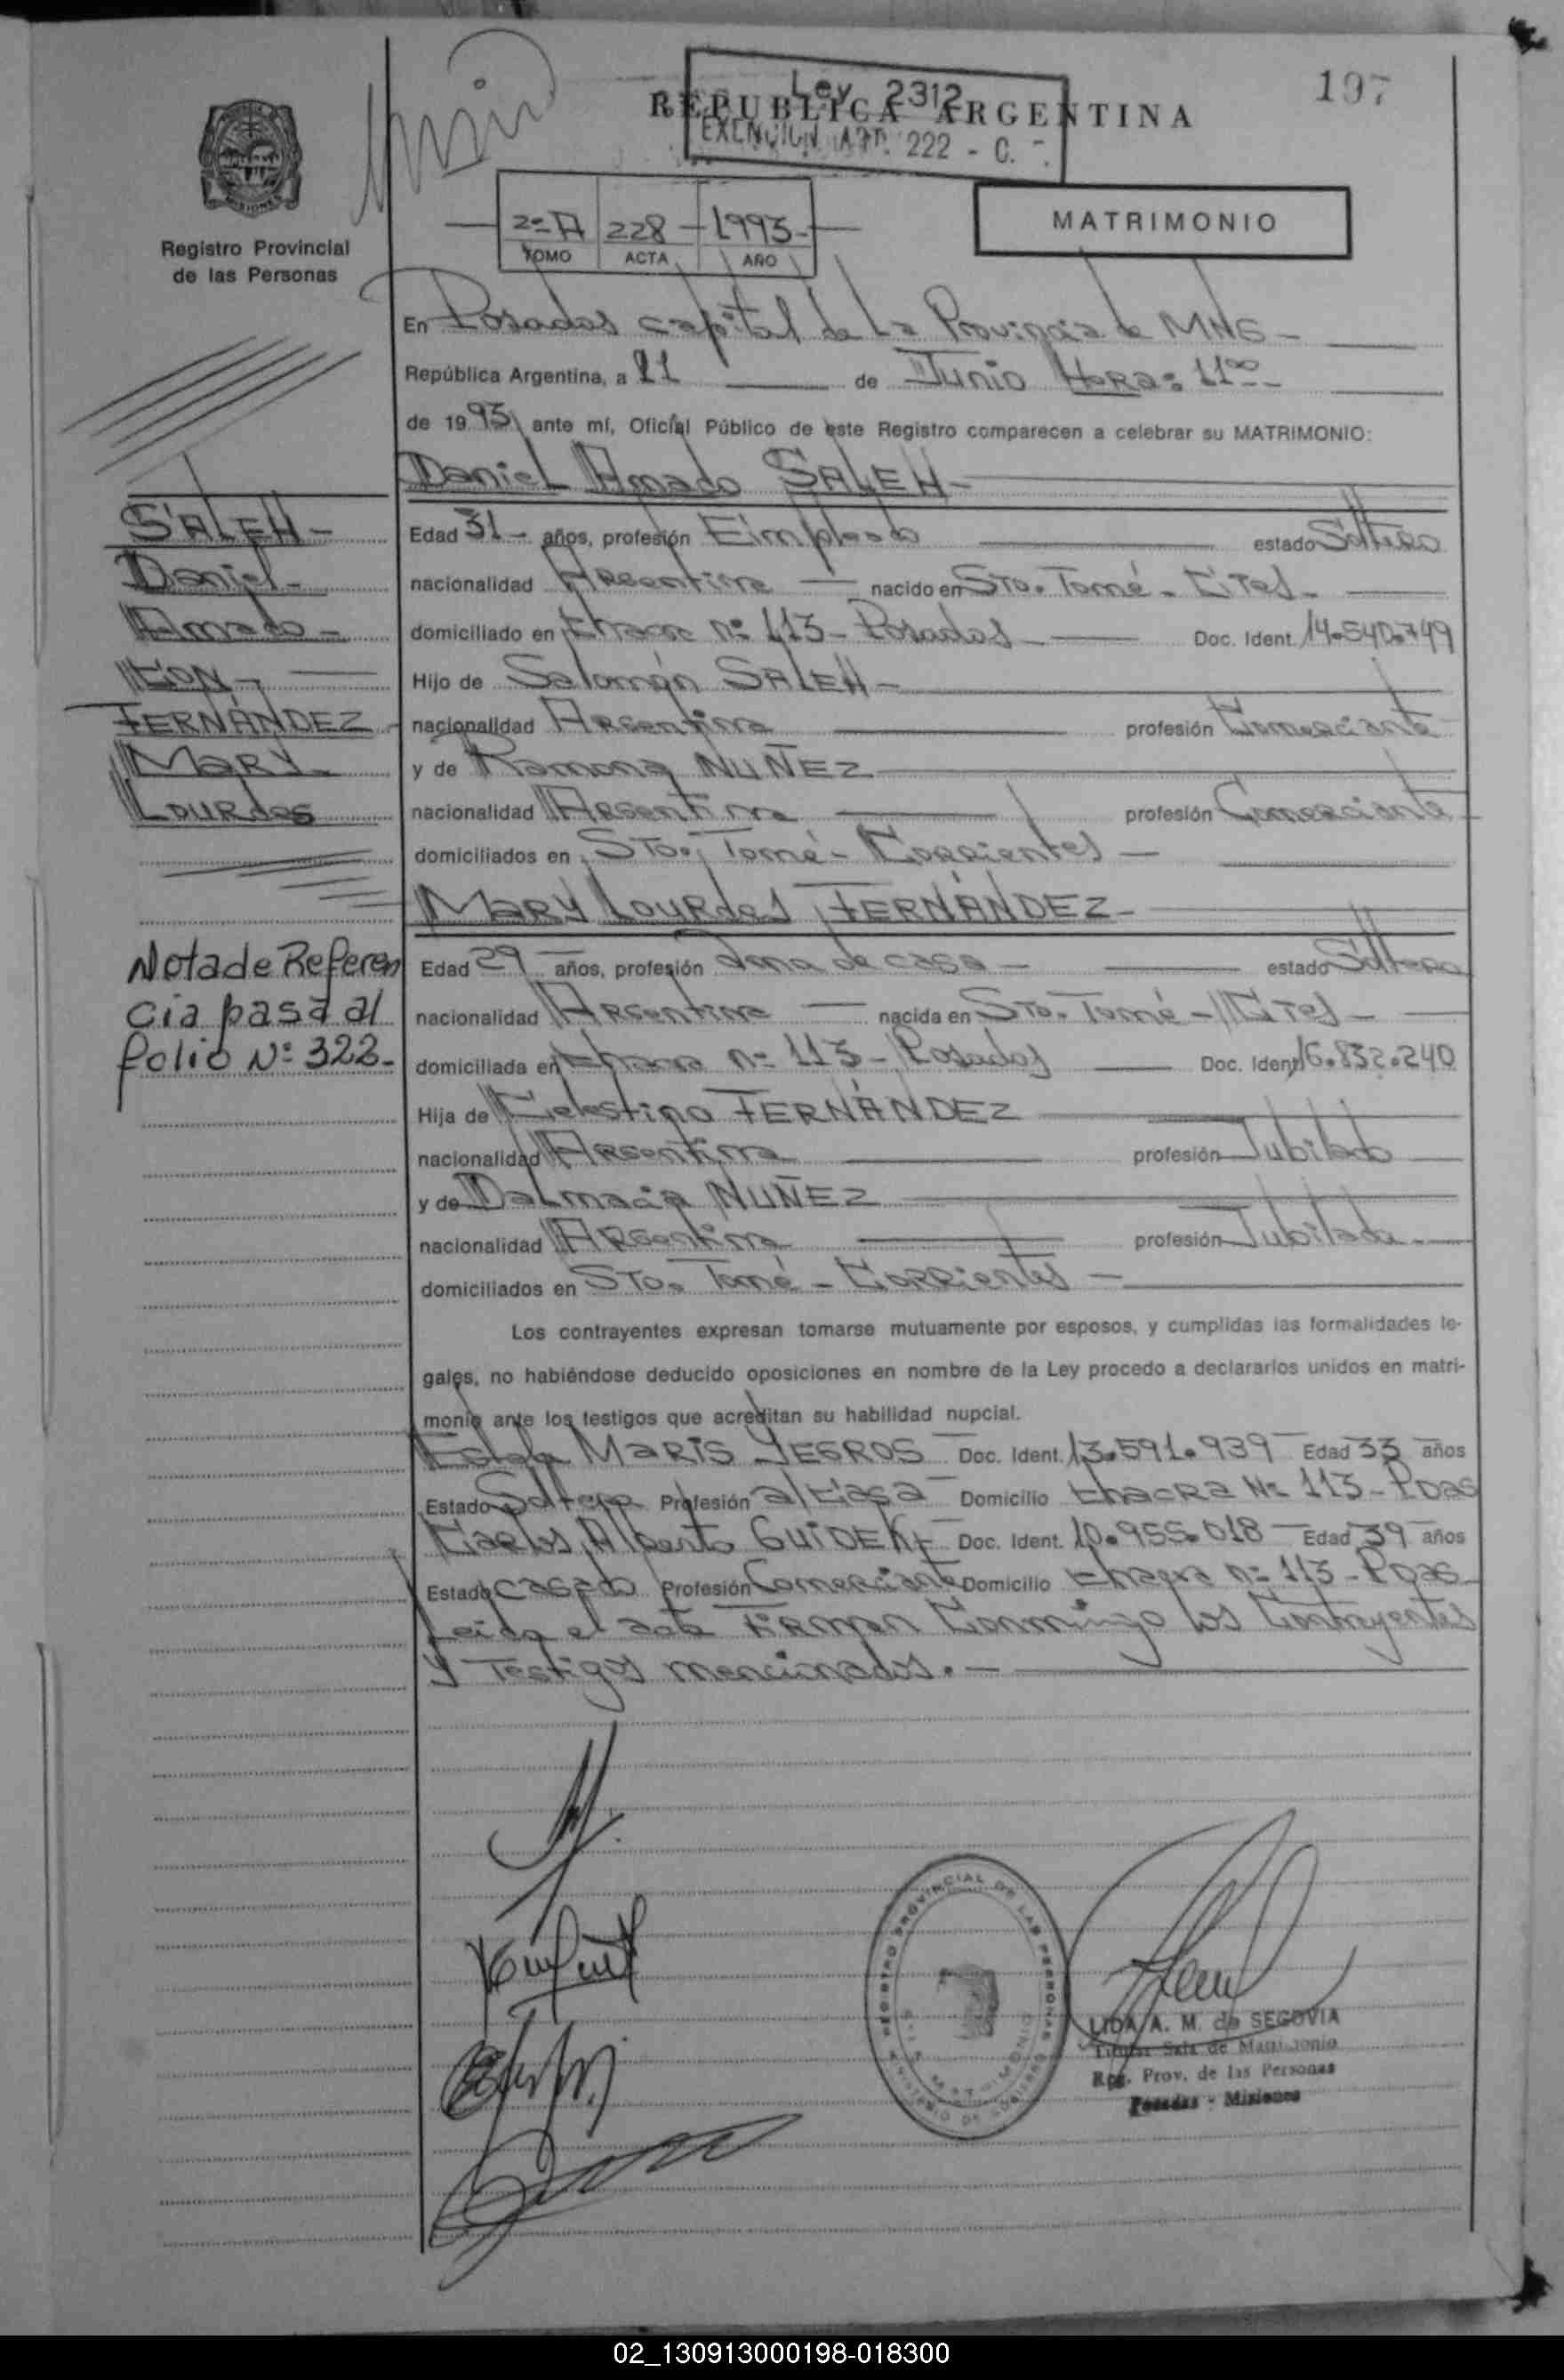 197
Ley 2312
REPUBLICA ARGENTINA
EXENCION ART. 222 - C.
MATRIMONIO
2º A 228 - 1993 -
TOMO ACTA AÑO
Registro Provincial
de las Personas
En Posadas capital de la Provincia de MNES -
República Argentina, a 11 de Junio Hora: 11 00
de 19 93 ante mí, Oficial Público de este Registro comparecen a celebrar su MATRIMONIO:
Daniel Amado SALEH -
Edad 31 - años, profesión Empleado estado Soltero
nacionalidad Argentina nacido en Sto. Tomé - Ctes -
domiciliado en Chacra nº 113 - Posadas Doc. Ident. 14.540.749
Hijo de Salomón SALEH -
nacionalidad Argentina profesión Comerciante
y de Ramona NUÑEZ
nacionalidad Argentina profesión Comerciante
domiciliados en Sto. Tomé - Corrientes -
Mary Lourdes FERNÁNDEZ -
Edad 29 años, profesión Ama de casa - estado Soltera
nacionalidad Argentina nacida en Sto. Tomé - Ctes -
domiciliada en Chacra nº 113 - Posadas Doc. Ident. 16.832.240
Hija de Celestino FERNÁNDEZ
nacionalidad Argentina profesión Jubilado
y de Dalmacia NUÑEZ
nacionalidad Argentina profesión Jubilada
domiciliados en Sto. Tomé - Corrientes -
Los contrayentes expresan tomarse mutuamente por esposos, y cumplidas las formalidades le-
gales, no habiéndose deducido oposiciones en nombre de la Ley procedo a declararlos unidos en matri-
monio ante los testigos que acreditan su habilidad nupcial.
Estela MARIS YEGROS Doc. Ident. 13.591.939 Edad 33 años
Estado Soltera Profesión a/casa Domicilio Chacra Nº 113 - Pdas
Carlos Alberto Doc. Ident. 10.955.018 Edad 39 años
Estado casado Profesión Comerciante Domicilio Chacra nº 113 - Pdas
Leida el acta Firman Conmigo los Contrayentes
y Testigos mencionados. -
SALEH -
Daniel -
Amado -
CON -
FERNÁNDEZ -
MARY
LOURdes
Nota de Referen
cia pasa al
folio Nº 322 -
REGISTRO PROVINCIAL DE LAS PERSONAS
MINISTERIO DE GOBIERNO
SALA MATRIMONIO
LIDA A. M. de SEGOVIA
Titular Sala de Matrimonio
Reg. Prov. de las Personas
Posadas - Misiones
02_130913000198-018300